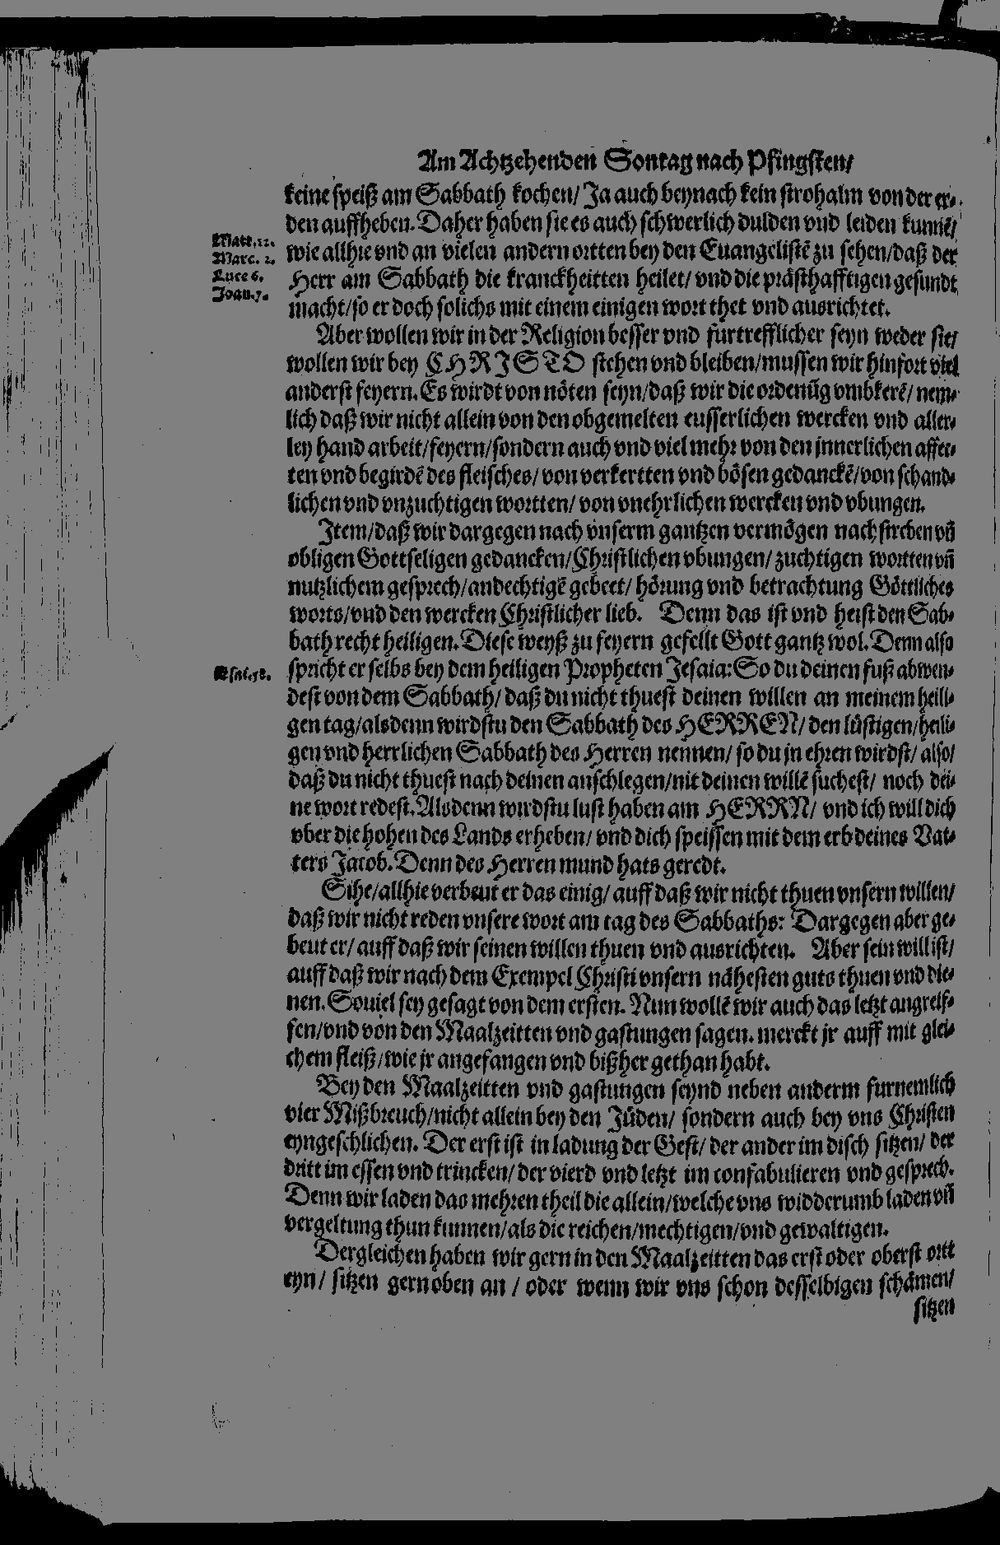 Am Achtzehenden Sontag nach Pfingsten/
keine speiß am Sabbath kochen/ Ja auch beynach kein strohalm von der er-
den auffheben. Daher haben sie es auch schwerlich dulden vnd leiden kunnē/
Matt. 12.
Marc. 2.
Luce 6.
Joan. 7.
wie allhie vnd an vielen andern ortten bey den Euangelistē zu sehen/daß der
Herr am Sabbath die kranckheitten heilet/ vnd die prästhafftigen gesundt
macht/so er doch solichs mit einem einigen wort thet vnd ausrichtet.
Aber wollen wir in der Religion besser vnd furtrefflicher seyn weder sie/
wollen wir bey CHRISTO stehen vnd bleiben/mussen wir hinfort viel
anderst feyern. Es wirdt von nöten seyn/daß wir die ordenūg vmbkerē/ nem-
lich daß wir nicht allein von den obgemelten eusserlichen wercken vnd aller-
ley hand arbeit/feyern/sondern auch vnd viel mehr von den jnnerlichen affec-
ten vnd begirdē des fleisches/ von verkertten vnd bösen gedanckē/von schand-
lichen vnd vnzuchtigen wortten/ von vnehrlichen wercken vnd vbungen.
Item/daß wir dargegen nach vnserm gantzen vermögen nach streben vñ
obligen Gottseligen gedancken/Christlichen vbungen/ zuchtigen wortten vñ
nutzlichem gesprech/andechtigē gebeet/ hörung vnd betrachtung Göttliches
worts/vnd den wercken Christlicher lieb. Denn das ist vnd heist den Sab-
bath recht heiligen. Diese weyß zu feyern gefellt Gott gantz wol. Denn also
Esai. 58.
spricht er selbs bey dem heiligen Propheten Jesaia: So du deinen fuß abwen-
dest von dem Sabbath/ daß du nicht thuest deinen willen an meinem heili-
gen tag/alsdenn wirdstu den Sabbath des HERREN/ den lüstigen/heili-
gen vnd herrlichen Sabbath des Herren nennen/ so du jn ehren wirdst/ also/
daß du nicht thuest nach deinen anschlegen/nit deinen willē suchest/ noch dei-
ne wort redest. Alsdenn wirdstu lust haben am HERRN/ vnd ich will dich
vber die hohen des Lands erheben/ vnd dich speissen mit dem erb deines Vat-
ters Jacob. Denn des Herren mund hats geredt.
Sihe/allhie verbeut er das einig/ auff daß wir nicht thuen vnsern willen/
daß wir nicht reden vnsere wort am tag des Sabbaths: Dargegen aber ge-
beut er/ auff daß wir seinen willen thuen vnd ausrichten. Aber sein will ist/
auff daß wir nach dem Exempel Christi vnsern nähesten guts thuen vnd die-
nen. Souiel sey gesagt von dem ersten. Nun wollē wir auch das letzt angreif-
fen/vnd von den Maalzeitten vnd gastungen sagen. merckt jr auff mit glei-
chem fleiß/wie jr angefangen vnd bißher gethan habt.
Bey den Maalzeitten vnd gastungen seynd neben anderm furnemlich
vier Mißbreuch/nicht allein bey den Jüden/ sondern auch bey vns Christen
eyngeschlichen. Der erst ist in ladung der Gest/ der ander im disch sitzen/ der
dritt im essen vnd trincken/ der vierd vnd letzt im confabulieren vnd gesprech.
Denn wir laden das mehren theil die allein/welche vns widderumb laden vñ
vergeltung thun kunnen/als die reichen/mechtigen/vnd gewaltigen.
Dergleichen haben wir gern in den Maalzeitten das erst oder oberst ortt
eyn/ sitzen gern oben an / oder wenn wir vns schon desselbigen schämen/
sitzen